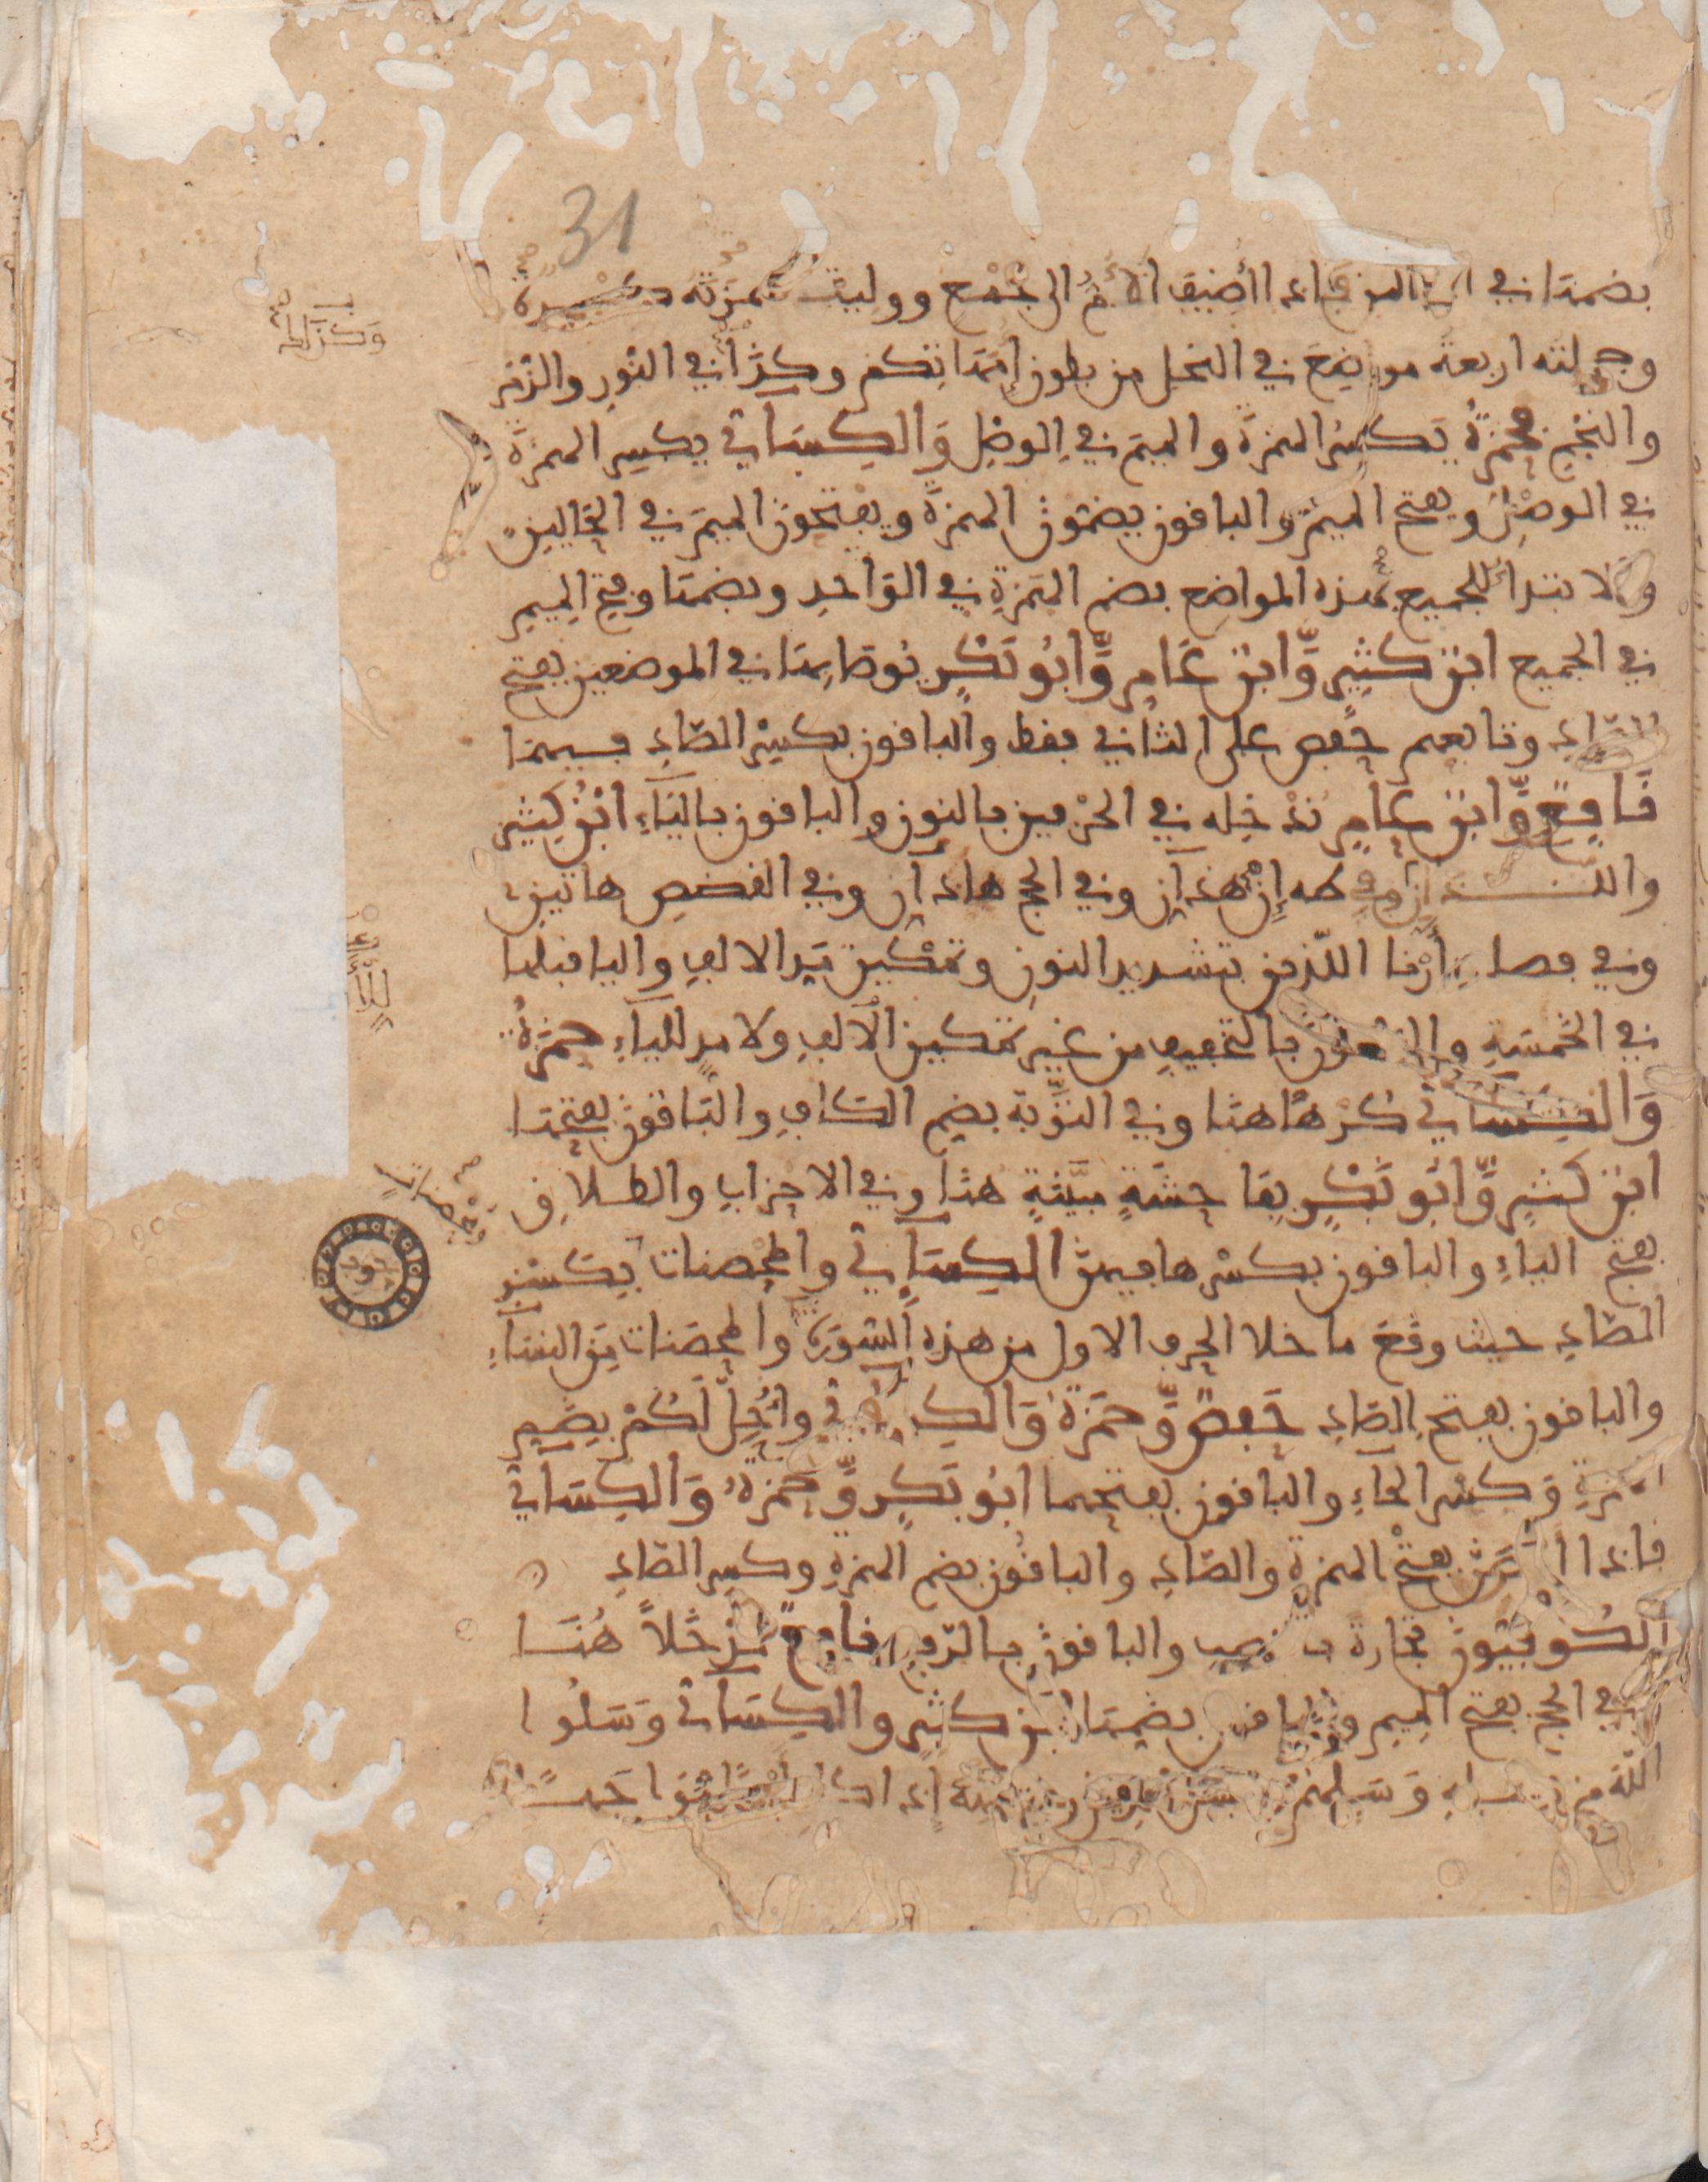 31
بضمها في الحالين فإذا أضيف الأم إلى جمع ووليت همزته كسرة
وجملته أربعة مواضع في النحل من بطون إمهاتكم وكذا في النور والزمر
والنجم فحمزة يكسر الهمزة والميم في الوصل والكسائي يكسر الهمزة
في الوصل ويفتح الميم والباقون يضمون الهمزة ويفتحون الميم في الحالين
والابتداء للجميع بهذه المواضع بضم الهمزة في الواحد وبضمها وفتح الميم
في الجميع ابن كثير وابن عامر وأبو بكر يوصا بها في الموضعين بفتح
الصاد وتابعهم حفص على الثاني فقط والباقون بكسر الصاد فيهما
نافع وابن عامر ندخله في الحرفين بالنون والباقون بالياء ابن كثير
والذان وفي طه إن هذان وفي الحج هاذان وفي القصص هاتين
وفي فصلت أرنا اللذين بتشديد النون وتمكين مد الالف واليا قبلها
في الخمسة والباقون بالتخفيف من غير تمكين الالف ولا مد للياء حمزة
والكسائي كرها هنا وفي التوبة بضم الكاف والباقون بفتحها
ابن كثير وأبو بكر بفاحشة مبينة هنا وفي الاحزاب والطلاق
بفتح الياء والباقون بكسرها فيهن الكسائي والمحصنات بكسر
الصاد حيث وقع ما خلا الحرف الاول من هذه السورة والمحصنات من النساء
والباقون بفتح الصاد حفص وحمزة والكسائي وأحل لكم بضم
الهمزة وكسر الحاء والباقون بفتحهما أبو بكر وحمزة والكسائي
فإذا أحصن بفتح الهمزة والصاد والباقون بضم الهمزة وكسر الصاد
الكوفيون تجارة بالنصب والباقون بالرفع نافع مدخلا هنا
وفي الحج بفتح الميم والباقون بضمها ابن كثير والكسائي وسلوا
الله من فضله وسلهم